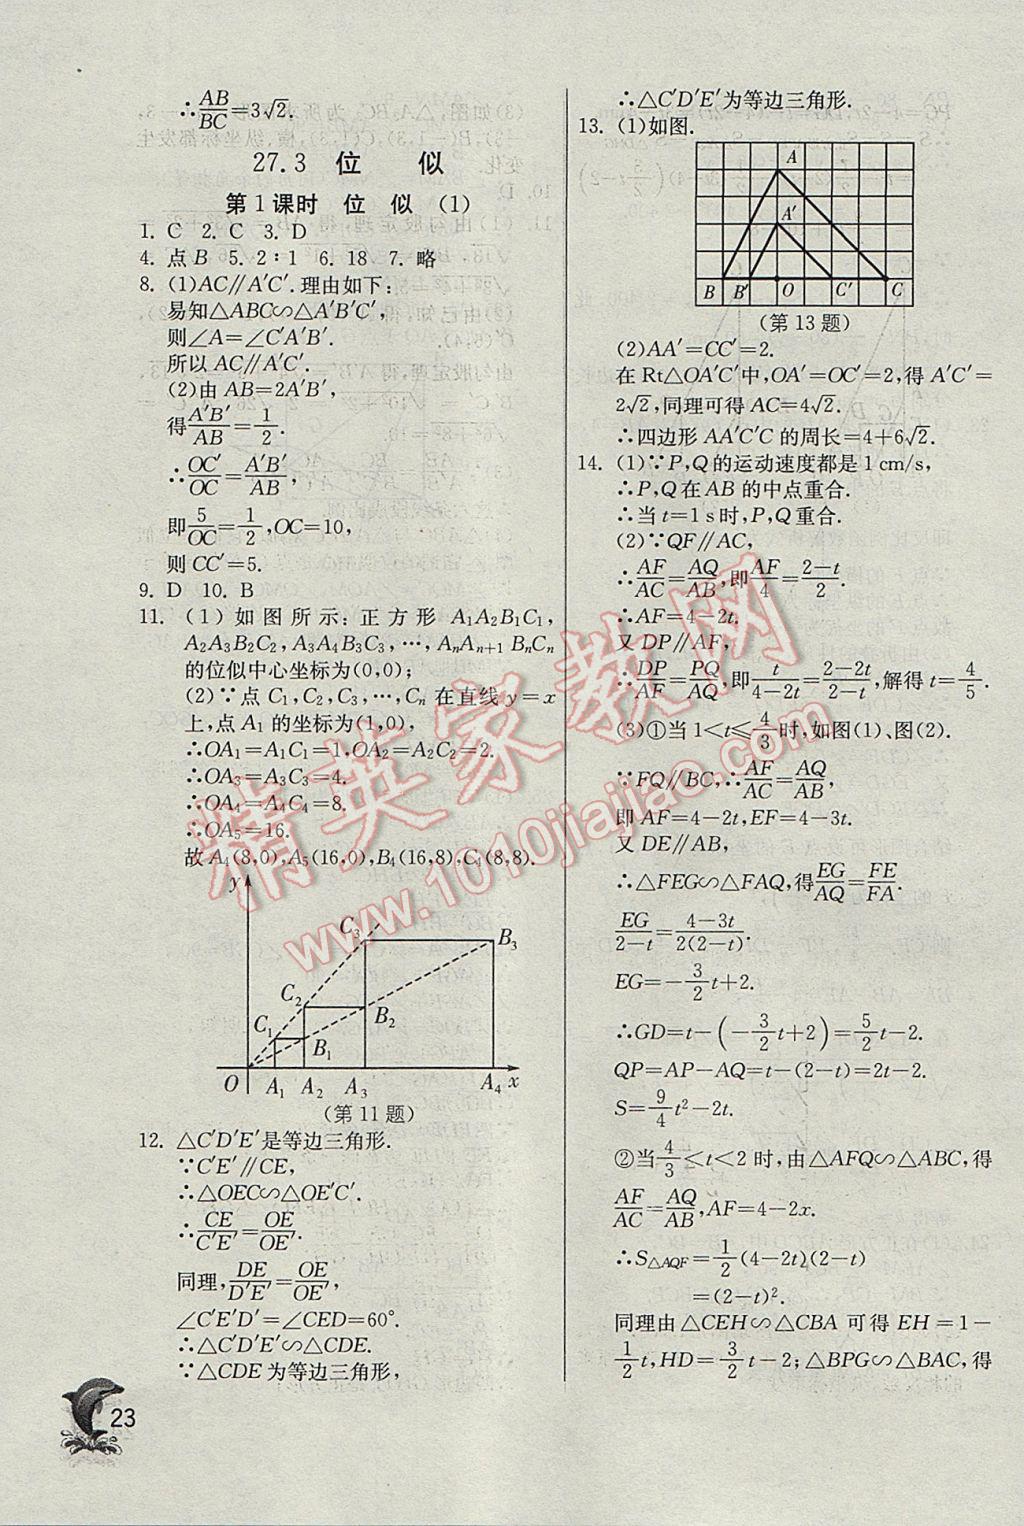 ∴AB/BC=3√2.
27.3 位 似
第1课时 位 似 (1)
1. C 2. C 3. D
4. 点B 5. 2∶1 6. 18 7. 略
8. (1)AC∥A′C′.理由如下:
易知△ABC∽△A′B′C′,
则∠A=∠C′A′B′.
所以 AC∥A′C′.
(2)由 AB=2A′B′,
得A′B′/AB=1/2.
∴OC′/OC=A′B′/AB,
即5/OC=1/2,OC=10,
则 CC′=5.
9. D 10. B
11. (1)如图所示:正方形 A₁A₂B₁C₁,
A₂A₃B₂C₂,A₃A₄B₃C₃,…,AₙAₙ₊₁BₙCₙ
的位似中心坐标为(0,0);
(2)∵点 C₁,C₂,C₃,…,Cₙ 在直线 y=x
上,点 A₁ 的坐标为(1,0),
∴OA₁=A₁C₁=1,OA₂=A₂C₂=2.
∴OA₃=A₃C₃=4.
∴OA₄=A₄C₄=8.
∴OA₅=16.
故 A₄(8,0),A₅(16,0),B₄(16,8),C₄(8,8).
y
C₃
B₃
C₂
B₂
C₁
B₁
O A₁ A₂ A₃ A₄ x
(第11题)
12. △C′D′E′是等边三角形.
∵C′E′∥CE,
∴△OEC∽△OE′C′.
∴CE/C′E′=OE/OE′.
同理,DE/D′E′=OE/OE′,
∠C′E′D′=∠CED=60°.
∴△C′D′E′∽△CDE.
∵△CDE为等边三角形,
∴△C′D′E′为等边三角形.
13. (1)如图.
A
A′
B B′ O C′ C
(第13题)
(2)AA′=CC′=2.
在 Rt△OA′C′中,OA′=OC′=2,得 A′C′=
2√2,同理可得 AC=4√2.
∴四边形 AA′C′C 的周长=4+6√2.
14. (1)∵P,Q的运动速度都是1 cm/s,
∴P,Q在AB的中点重合.
∴当 t=1 s时,P,Q重合.
(2)∵QF∥AC,
∴AF/AC=AQ/AB,即AF/4=(2-t)/2.
∴AF=4-2t.
又 DP∥AF,
∴DP/AF=PQ/AQ,即t/(4-2t)=(2-2t)/(2-t),解得 t=4/5.
(3)①当1<t≤4/3时,如图(1)、图(2).
∵FQ∥BC,∴AF/AC=AQ/AB,
即 AF=4-2t,EF=4-3t.
又 DE∥AB,
∴△FEG∽△FAQ,得EG/AQ=FE/FA.
EG/(2-t)=(4-3t)/2(2-t).
EG=-3/2t+2.
∴GD=t-(-3/2t+2)=5/2t-2.
QP=AP-AQ=t-(2-t)=2t-2.
S=9/4t²-2t.
②当4/3<t<2时,由△AFQ∽△ABC,得
AF/AC=AQ/AB,AF=4-2x.
∴S△AQF=1/2(4-2t)(2-t)
=(2-t)².
同理由△CEH∽△CBA可得 EH=1-
1/2t,HD=3/2t-2;△BPG∽△BAC,得
23
精英家教网
www.1010jiajiao.com